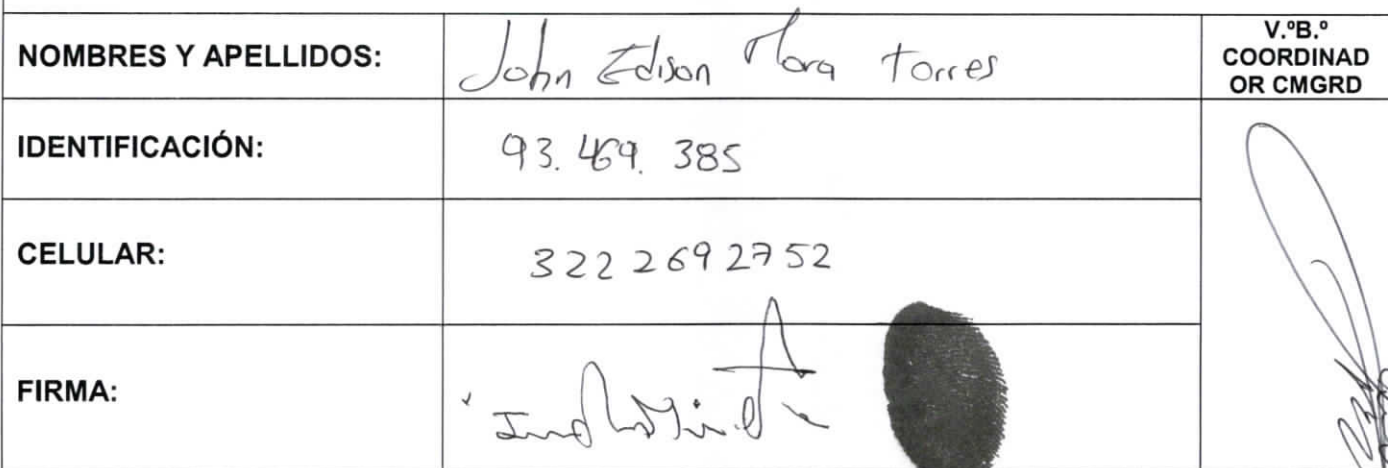 NOMBRES Y APELLIDOS: John Edison Mora Torres
V.ºB.º
COORDINAD
OR CMGRD
IDENTIFICACIÓN: 93.469.385
CELULAR: 322 269 2752
FIRMA: